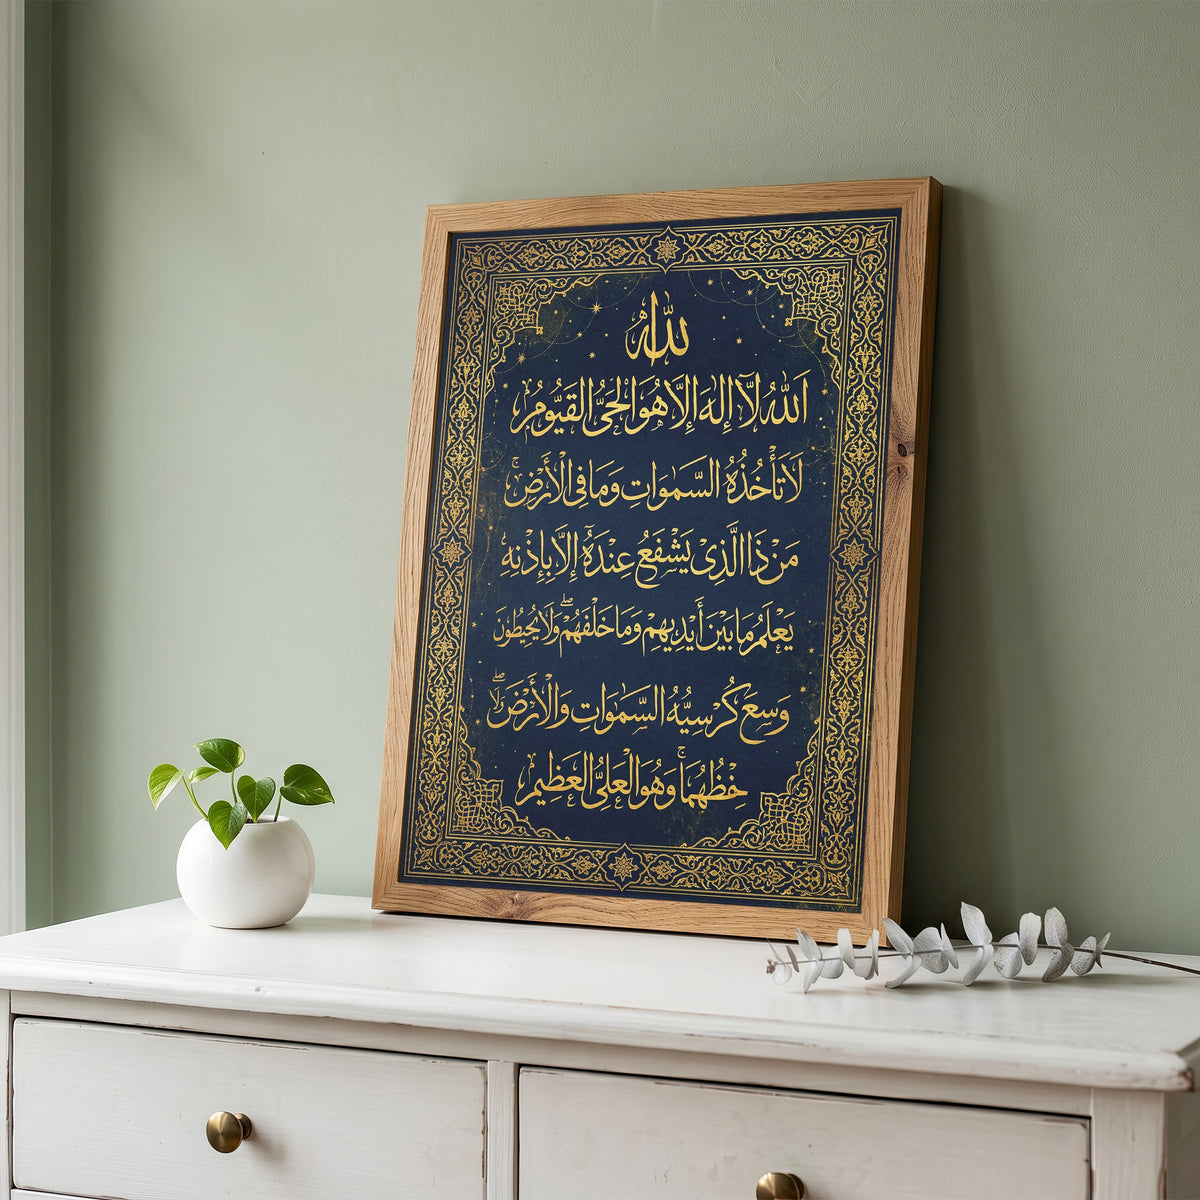 الله
اَللّٰهُ لَآ اِلٰهَ اِلَّا هُوَ الْحَىُّ الْقَيُّوْمُ
لَا تَأْخُذُهُ السَّمٰوَاتِ وَمَا فِى الْأَرْضِ
مَنْ ذَا الَّذِىْ يَشْفَعُ عِنْدَهٗ اِلَّا بِإِذْنِهِ
يَعْلَمُ مَا بَيْنَ أَيْدِيهِمْ وَمَا خَلْفَهُمْ وَلَا يُحِيطُونَ
وَسِعَ كُرْسِيُّهُ السَّمٰوَاتِ وَالْأَرْضَ وَلَا
حِفْظُهُمَا وَهُوَ الْعَلِىُّ الْعَظِيْمُ